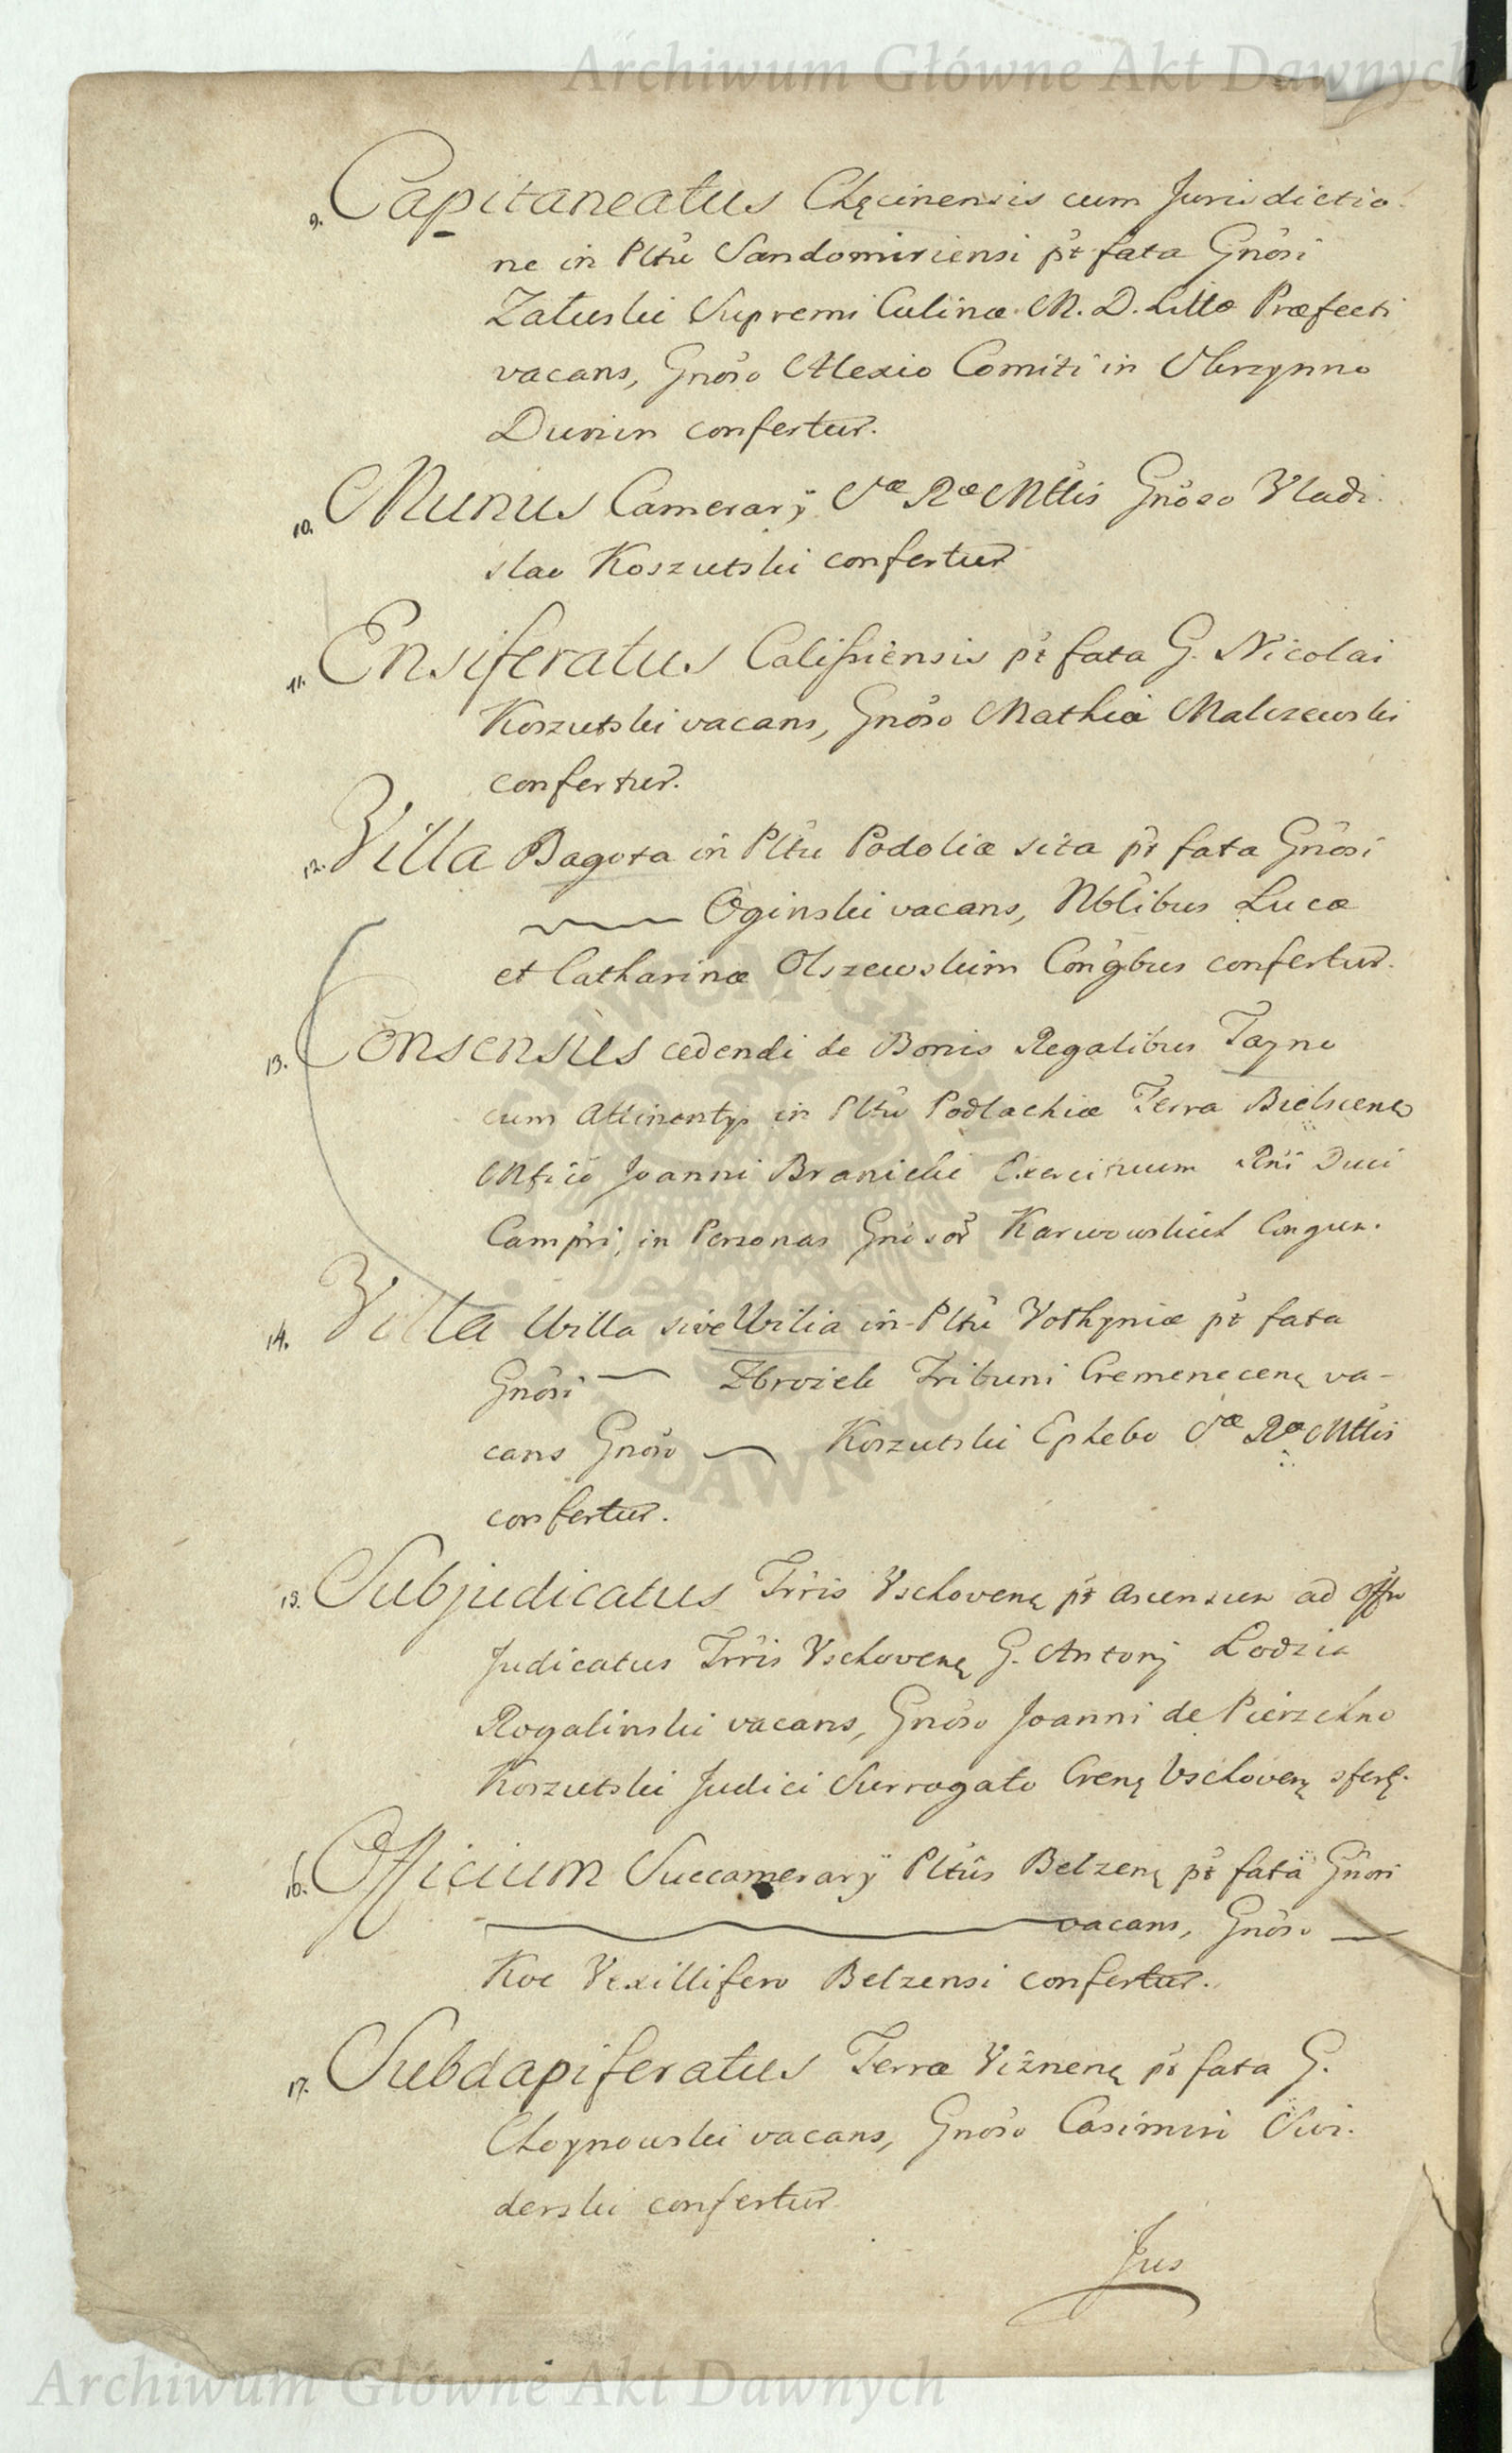 Archiwum Główne Akt Dawnych
9. Capitaneatus Chęcinensis cum Jurisdictio-
ne in Pltu Sandomiriensi pt fata Gnosi
Załuski Supremi Culinæ M. D. Litt̄æ Præfecti
vacans, Gnoso Alexio Comiti in Skrzynno
Dunin confertur.
10. Munus Camerarÿ Sæ Ræ Mttis Gnoso Vladi-
slao Koszutski confertur
11. Ensiferatus Calissiensis pt fata G. Nicolai
Koszutski vacans, Gnoso Mathiæ Malczewski
confertur.
12. Villa Bagota in Pltu Podoliæ sita pt fata Gnosi
Oginski vacans, Nblibus Lucæ
et Catharinæ Olszewskim Congbus confertur.
13. Consensus cedendi de Bonis Regalibus Tayno
cum Attinentÿs in Pltu Podlachiæ Terra Bielscenę
Mfico Joanni Branicki Exercituum Rni Duci
Campri, in Personas Gnosor Karwowskich Congum.
14. Villa Urilla sive Urilia in Pltu Volhyniæ pt fata
Gnosi Zbrozek Tribuni Cremenecenę va-
cans Gnoso Koszutski Ephebo Sæ Ræ Mttis
confertur.
15. Subjudicatus Trris Vschovenę pt ascensum ad offm
Judicatus Trris Vschovenę G. Antonÿ Lodzia
Rogalinski vacans, Gnoso Joanni de Pierzchno
Koszutski Judici Surrogato Crenę Vschovenę sfert.
16. Officium Succamerarÿ Pltus Belzenę pt fata Gnosi
vacans, Gnoso
Koc Vexillifero Belzensi confertur.
17. Subdapiferatus Terræ Viznenę pt fata G.
Choynowski vacans, Gnoso Casimiri Swi-
derski confertur
Jus
Archiwum Główne Akt Dawnych